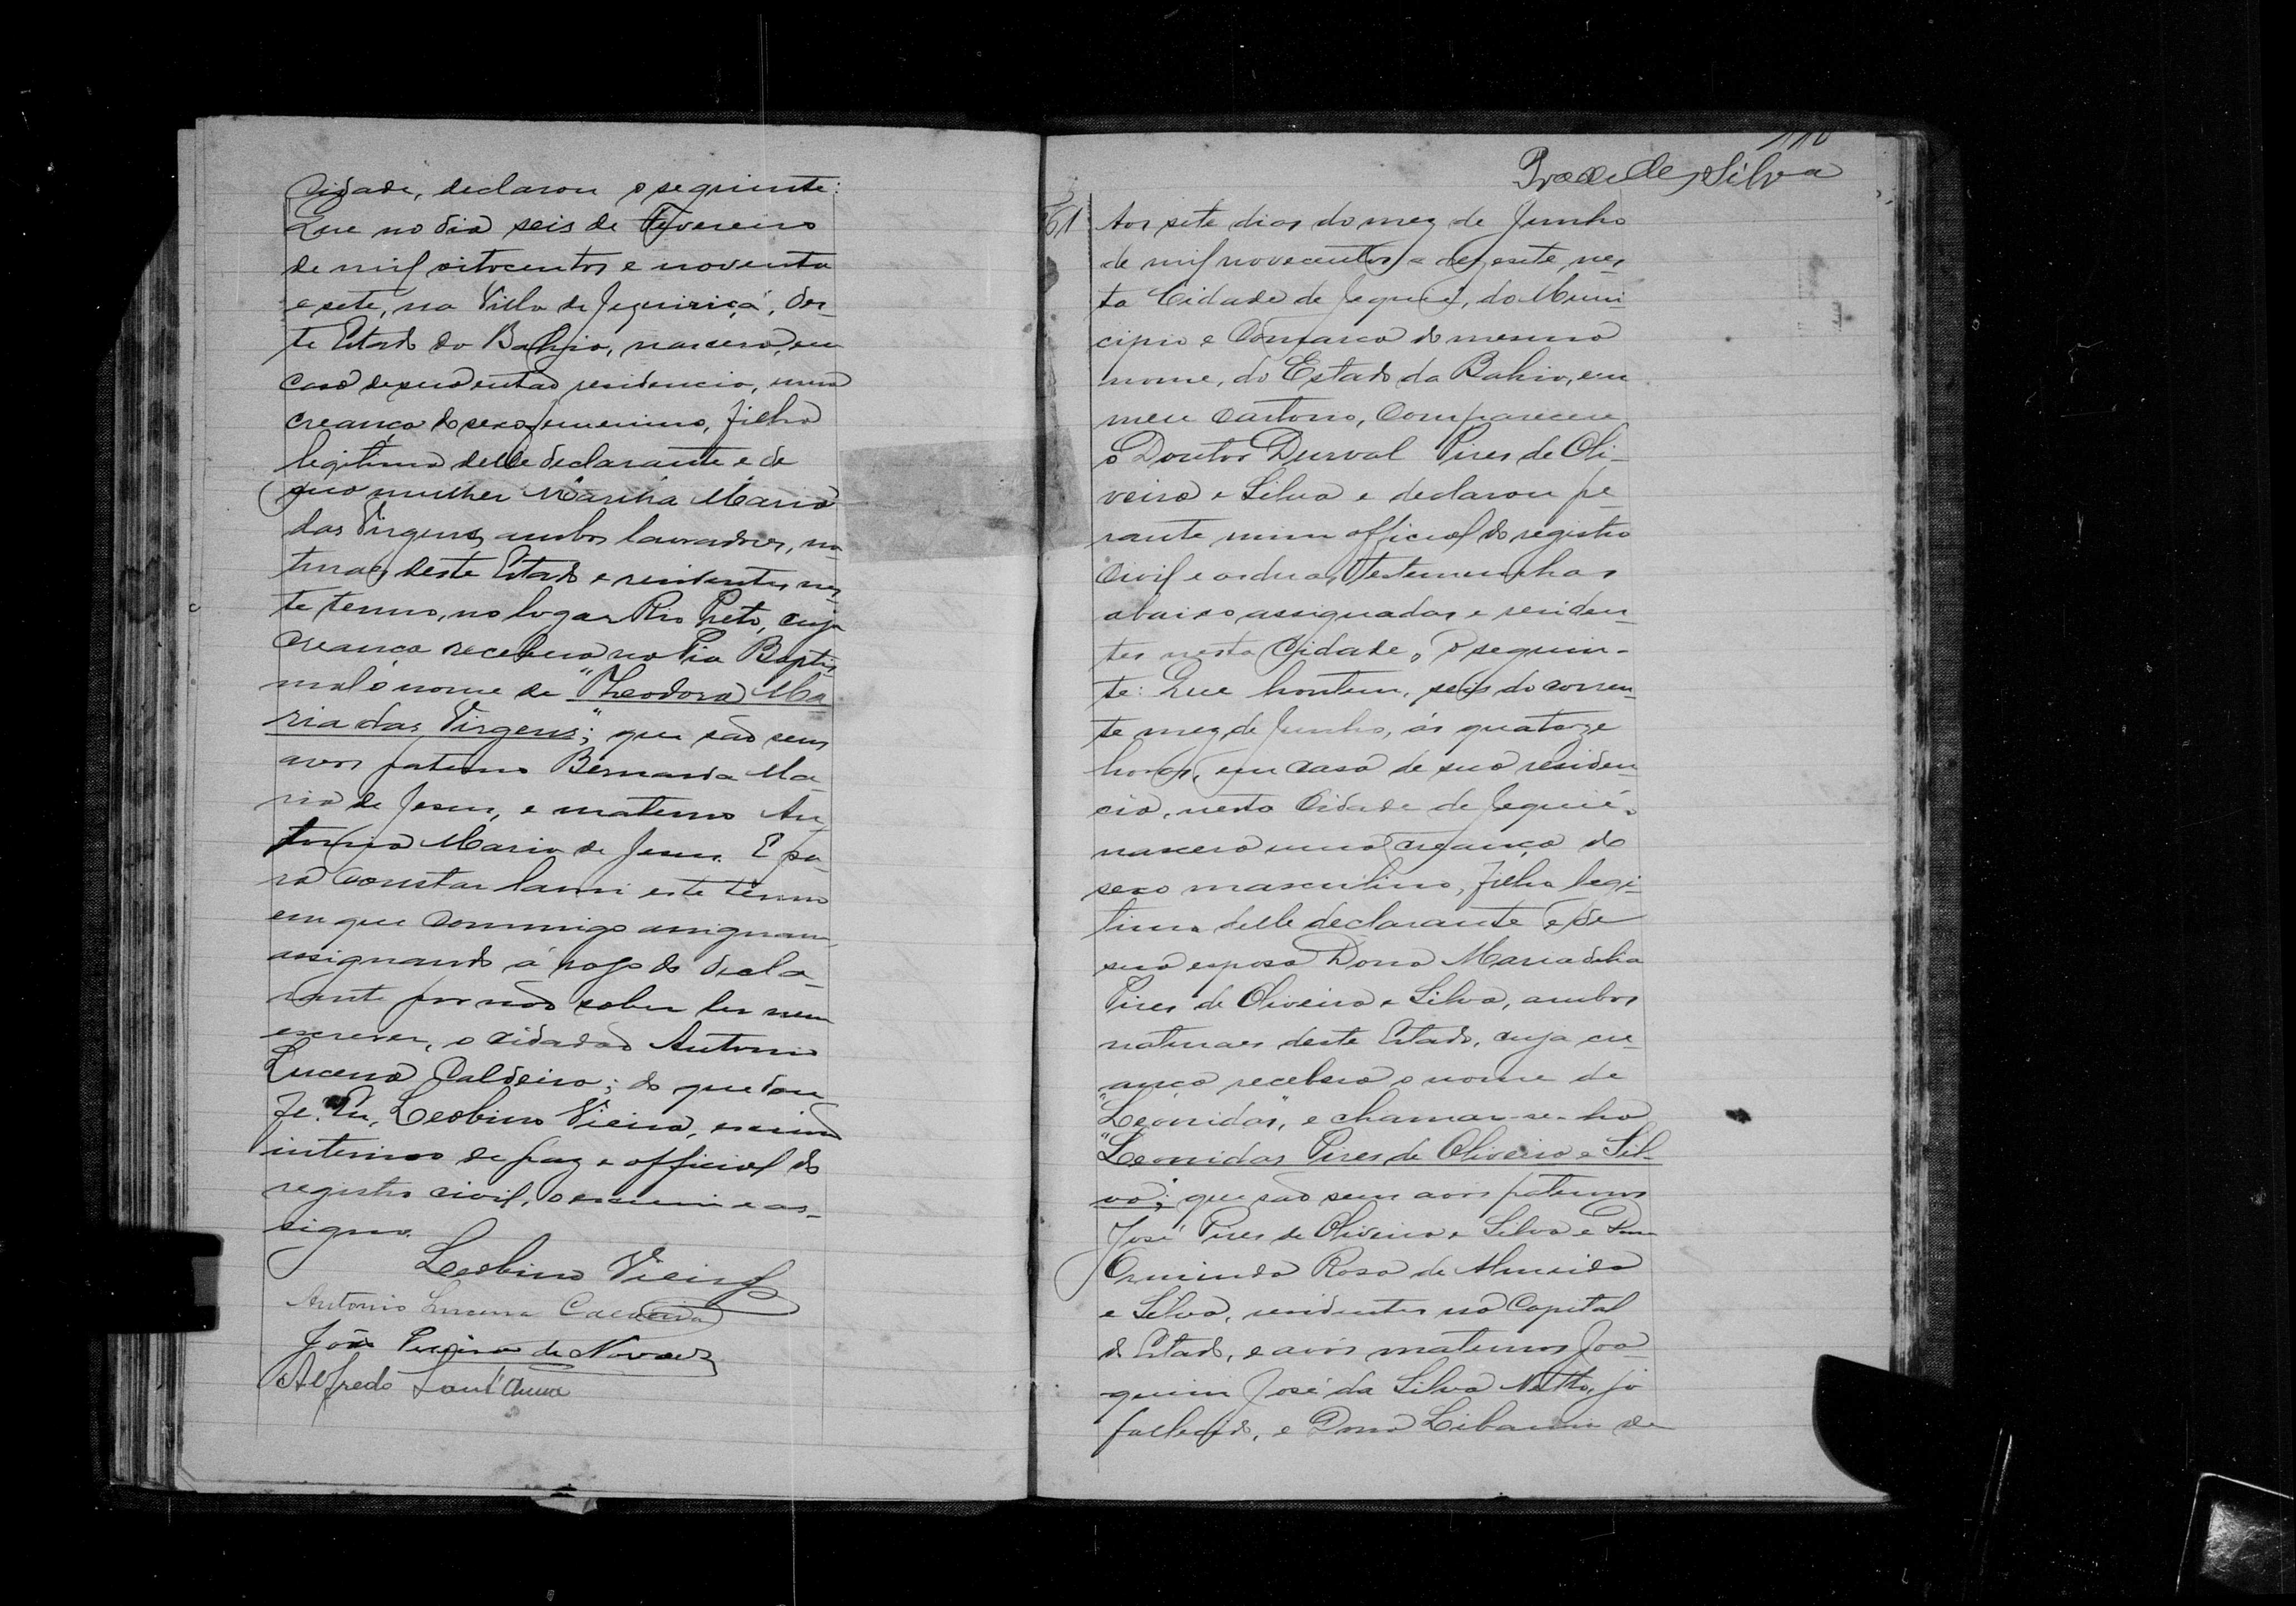 Cidade, declarou o seguinte:
Que no dia seis de Fevereiro
de mil oitocentos e noventa
e sete, na Villa de Jequiriçá, des-
te Estado da Bahia, nascera, em
casa de sua então residencia, uma
creança do sexo femenino, filha
legitima delle declarante e de
sua mulher Maria
das Virgens, ambos lavradores, na-
turaes deste Estado e residentes nes-
te termo, no lugar Rio Preto, cuja
creança recebera na Pia Baptis-
mal o nome de "Theodora Ma-
ria das Virgens"; que são seus
avós paterno Bernarda Ma-
ria de Jesus, e materno An-
tonia Maria de Jesus. E pa-
ra constar lavrei este termo
em que commigo assignam,
assignando á rogo do decla-
rante por não saber ler nem
escrever, o cidadão Antonio
Lucena Caldeira; do que dou
fé. Eu, Leobino Vieira, escrivão
interino de paz e official do
registro civil, o escrevi e as-
signo.
Leobino Vieira
Antonio Lucena Caldeira
João Pereira de Novaes
Alfredo Sant'Anna
110
de Silva
361
Aos sete dias do mez de Junho
de mil novecentos e dezesete, nes-
ta Cidade de Jequié, do Muni-
cipio e Comarca do mesmo
nome, do Estado da Bahia, em
meu cartorio, compareceu
o Doutor Durval Pires de Oli-
veira e Silva e declarou pe-
rante mim official do registro
civil e as duas testemunhas
abaixo assignadas e residen-
tes nesta Cidade, o seguin-
te: Que hontem, seis do corren-
te mez de Junho, ás quatorze
horas, em casa de sua residen-
cia, nesta Cidade de Jequié,
nascera uma creança do
sexo masculino, filha legi-
tima delle declarante e de
sua esposa Dona
Pires de Oliveira e Silva, ambos
naturaes deste Estado, cuja cre-
ança recebera o nome de
"Leonidas", e chamar-se-ha
"Leonidas Pires de Oliveira e Sil-
va"; que são seus avós paternos
José Pires de Oliveira e Silva e Dona
Erminda Rosa de Almeida
e Silva, residentes na Capital
do Estado, e avós maternos Joa-
quim José da Silva Netto, já
fallecido, e Dona Libania de